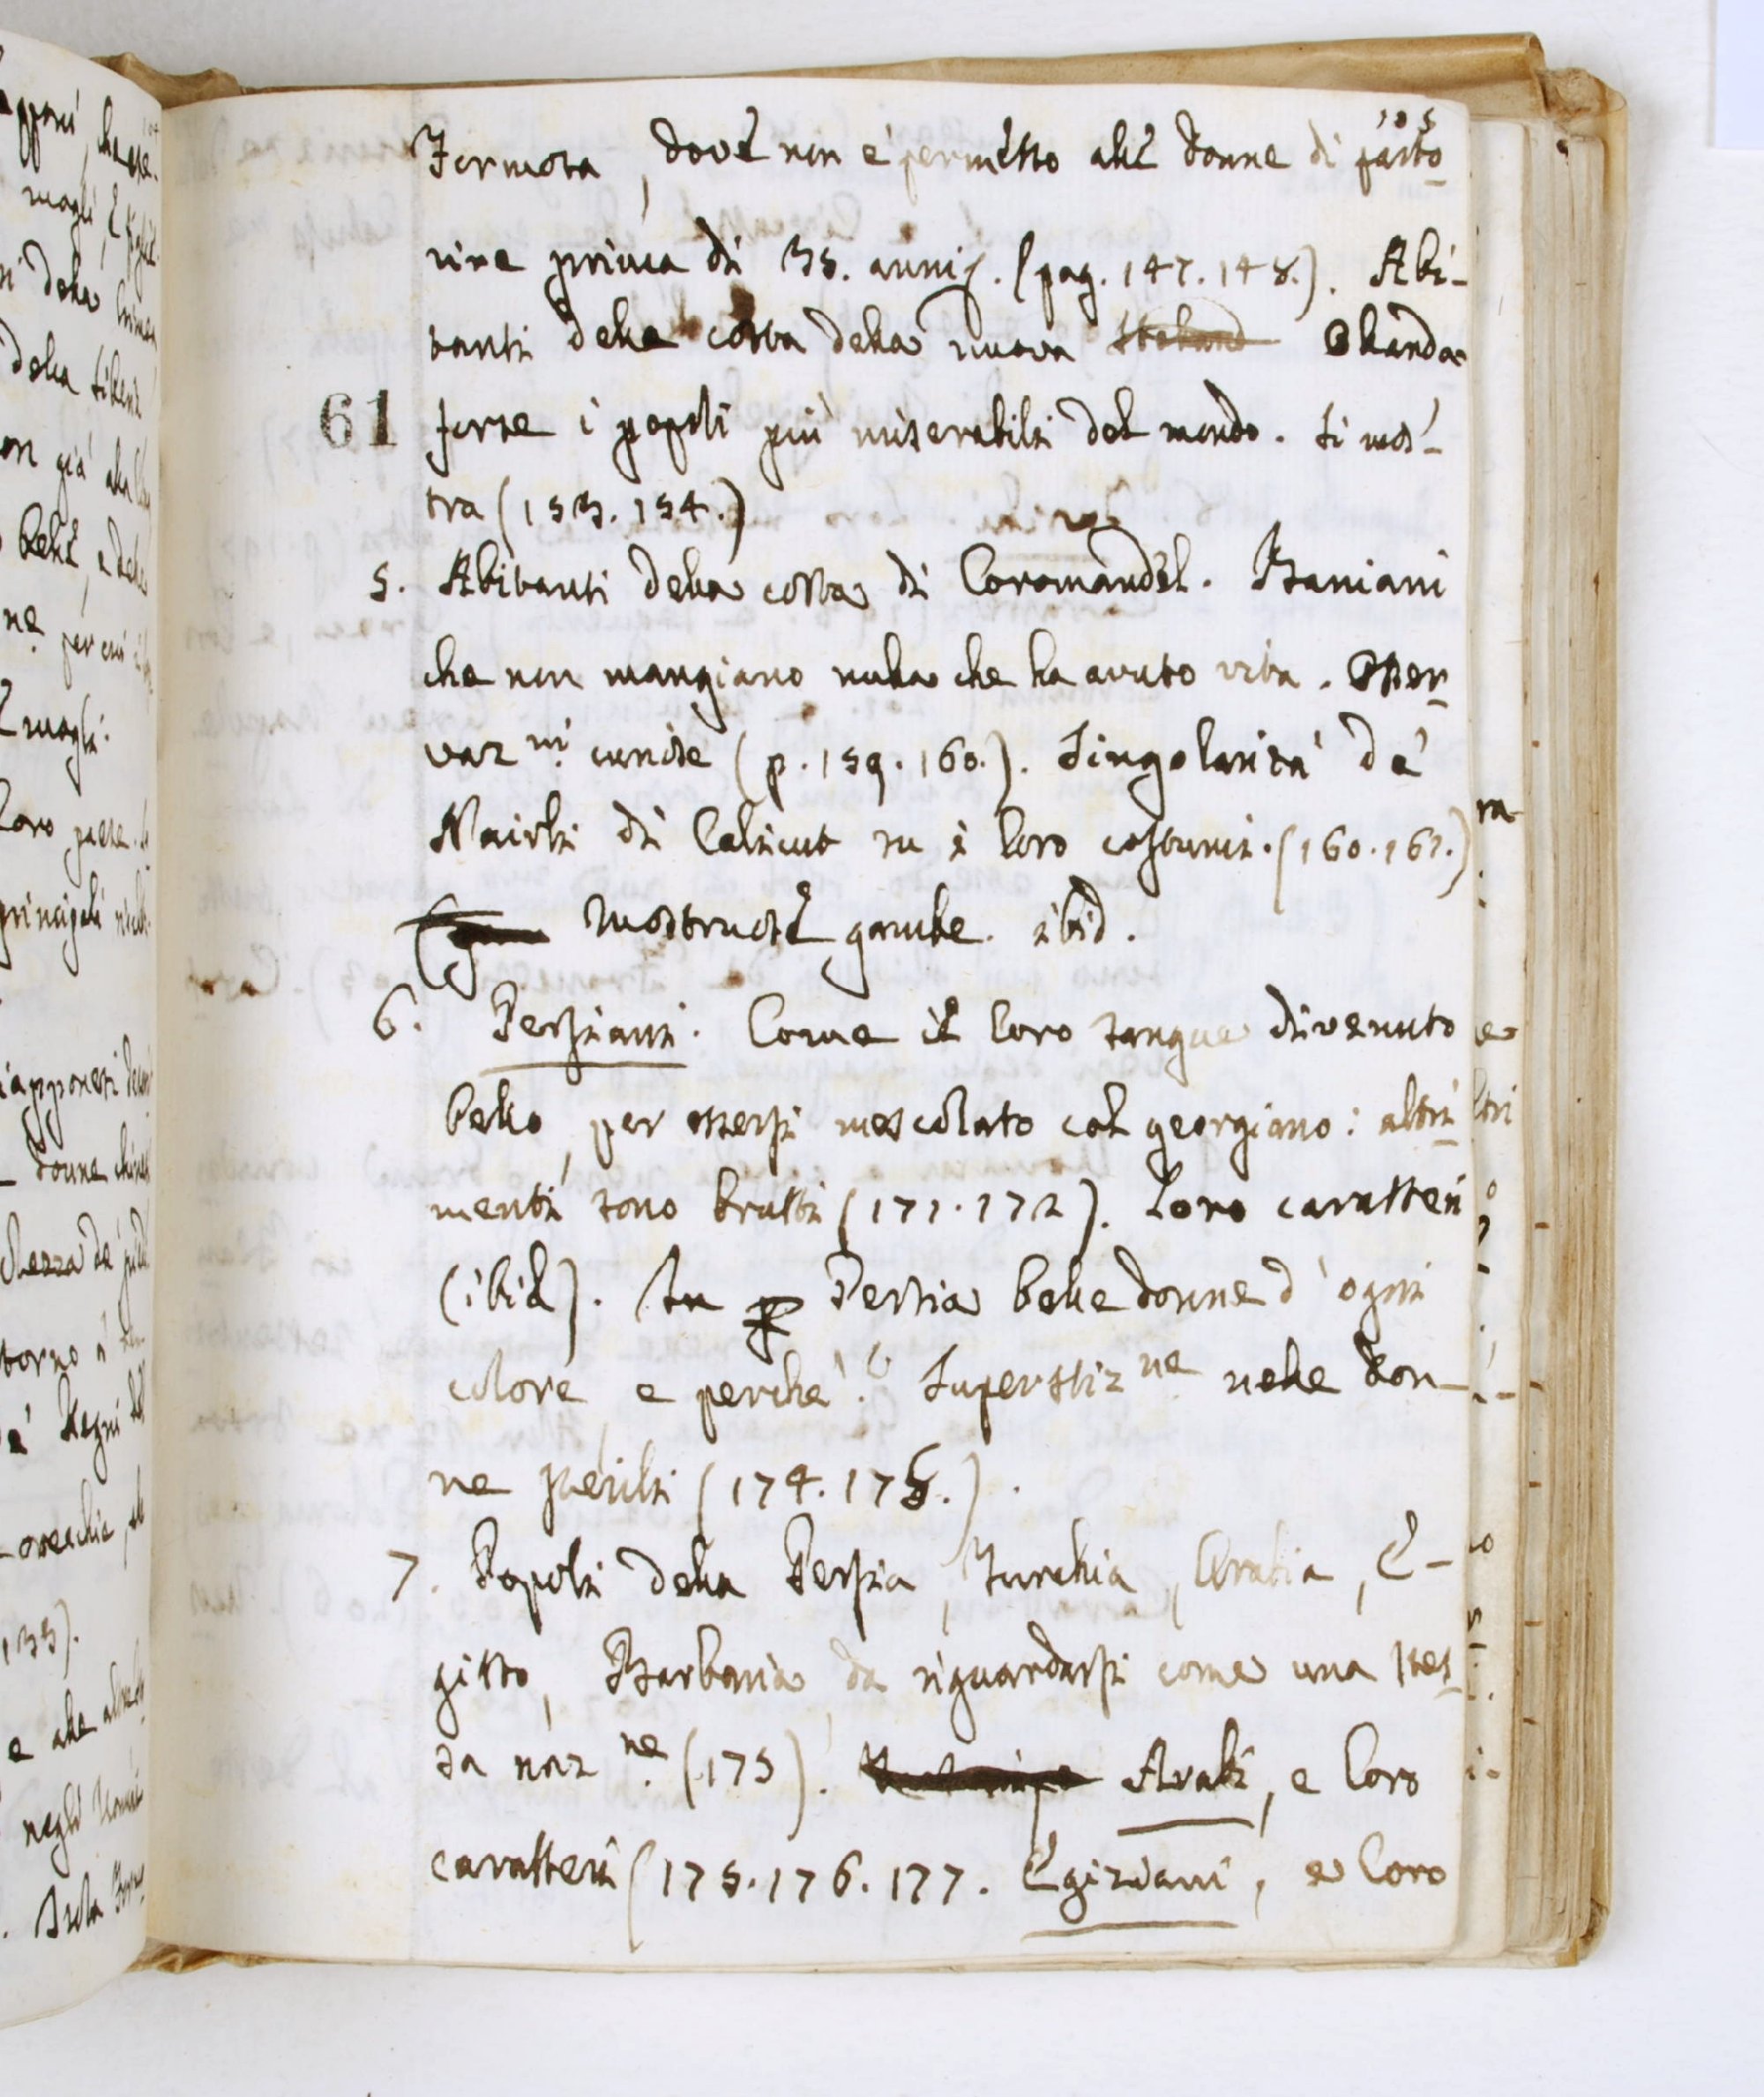 105
Formosa, dove non è permesso alle donne di parto-
rire prima di 35. anni. (pag. 147. 148.). Abi-
tanti della costa della nuova Olanda
61
forse i popoli più miserabili del mondo. si mos-
tra (153. 154.)
5. Abitanti della costa di Coromandel. Baniani
che non mangiano nulla che ha avuto vita. Osser-
vaz.ni curiose (p. 159. 160.). Singolarità de'
Nairi di Calicut su i loro costumi. (160. 161.)
Mostruose gambe. ibid.
6. Persiani. Come il loro sangue divenuto
bello, per essersi mescolato col georgiano: altri-
menti sono brutti (171. 172). Loro caratteri
(ibid). In p Persia belle donne d'ogni
colore e perchè? Superstiz.ne nelle don-
ne sterili (174. 175.).
7. Popoli della Persia, Turchia, Arabia, E-
gitto, Barbaria da riguardarsi come una stes-
sa naz.ne (175). Arabi, e loro
caratteri (175. 176. 177. Egiziani, e loro